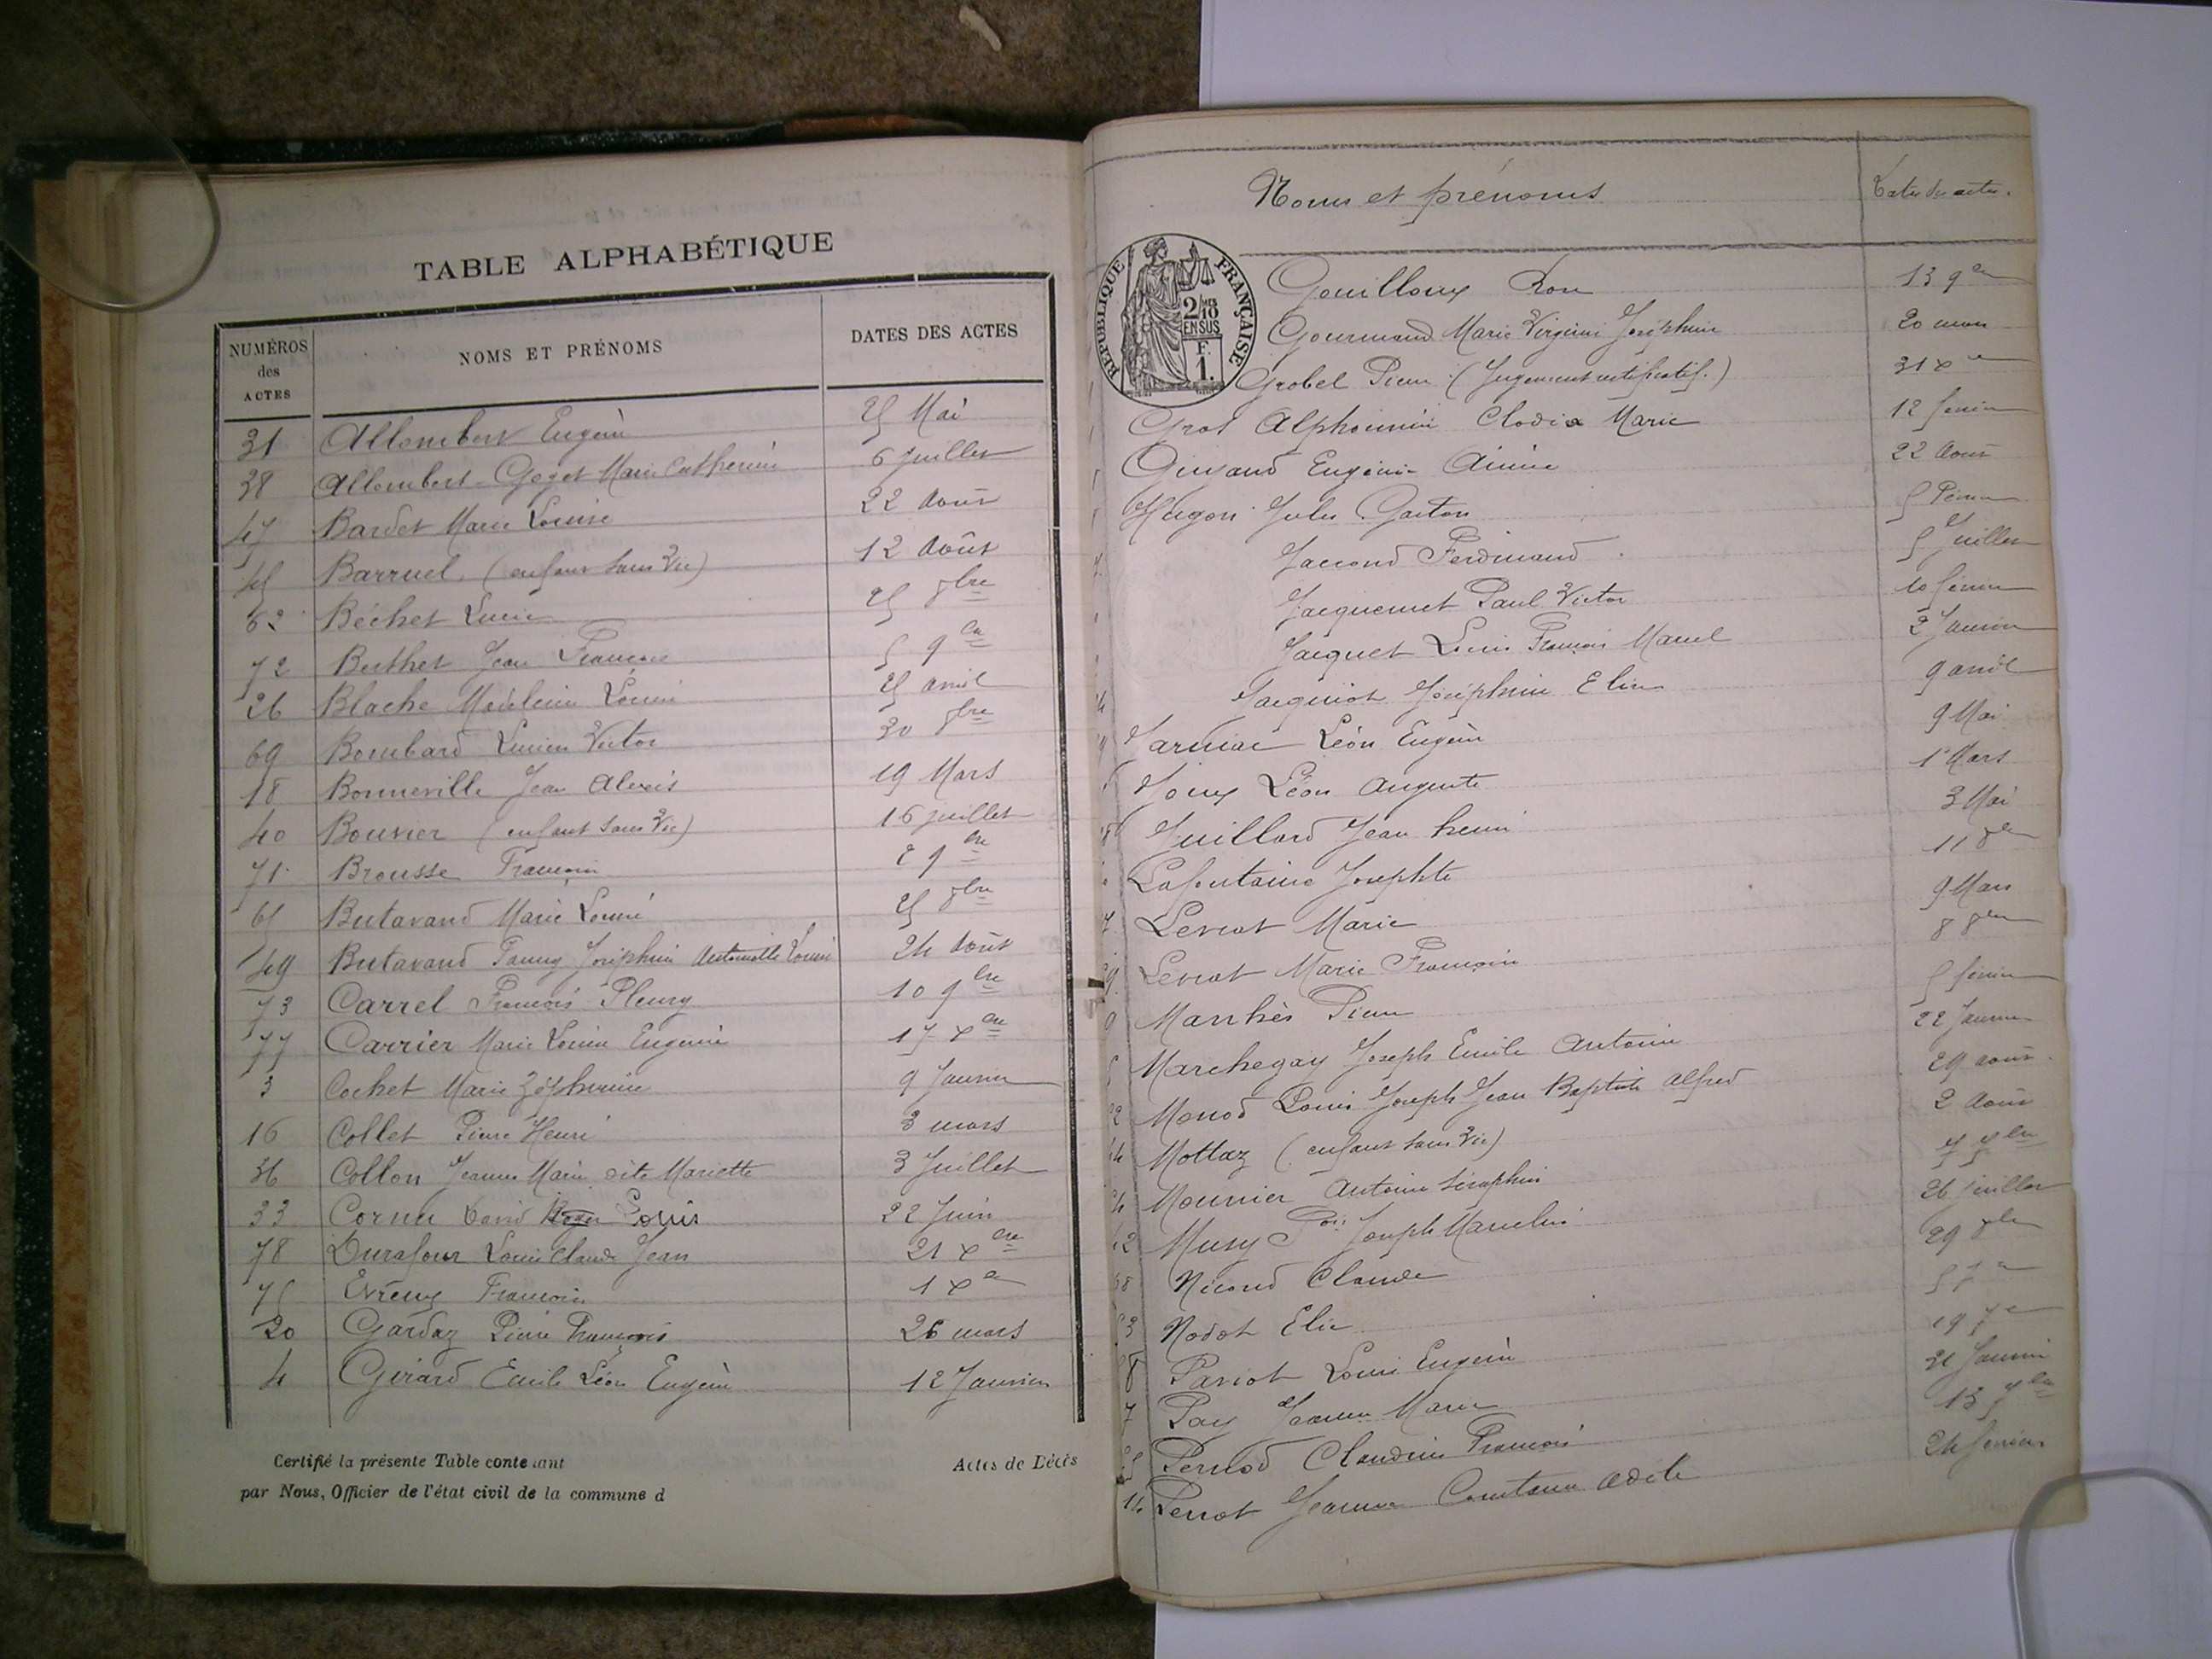 TABLE ALPHABÉTIQUE
NUMÉROS des ACTES NOMS ET PRÉNOMS DATES DES ACTES
31 Allombert Eugène 25 Mai
38 Allombert-Goget Marie Catherine 6 juillet
47 Bardet Marie Louise 22 Août
45 Barruel (enfant sans Vie) 12 Août
62 Béchet Lucie 25 8bre
72 Berthet Jean François 5 9bre
26 Blache Madeleine Louise 25 avril
69 Bombard Lucien Victor 30 8bre
18 Bonneville Jean Alexis 19 Mars
40 Bouvier (enfant sans Vie) 16 juillet
71 Brousse 2 9bre
61 Butavand Marie Louise 25 8bre
49 Butavand Fanny Joséphine Antoinette Louise 24 Août
73 Carrel François Fleury 10 9bre
77 Carrier Marie Louise Eugénie 17 Xbre
3 Cochet Marie Zéphirine 9 Janvier
16 Collet Pierre Henri 3 mars
36 Collon Jeanne Marie dite Mariette 3 Juillet
33 Cornu David Louis 22 Juin
78 Durafour Louis Claude Jean 21 Xbre
75 Evreux 1 Xbre
20 Gardaz Pierre François 26 mars
4 Girard Emile Léon Eugène 12 Janvier
Certifié la présente Table contenant Actes de Décès
par Nous, Officier de l'état civil de la commune d
Noms et prénoms Dates des actes.
REPUBLIQUE FRANÇAISE
2/10 EN SUS
F. 1.
Gouilloux 13 9bre
Gourmand Marie Virginie Joséphine 20 mars
Grobel Pierre (Jugement rectificatif.) 31 Xbre
Gros Alphonsine Clodia Marie 12 février
Guyand Eugénie Aimée 22 Août
Hugon Jules Gaston 5 février
Jaccond Ferdinand 5 Juillet
Jacquemet Paul Victor 10 février
Jacquet Louis François Marcel 2 Janvier
Jacquiot Joséphine Elise 9 avril
Jarniac Léon Eugène 9 Mai
Joux Léon Auguste 1 Mars
Juillard Jean Henri 3 Mai
Lafontaine Josephte 11 8bre
Levrat Marie 9 Mars
Levrat Marie Françoise 8 8bre
Manhès Pierre 5 février
Marchegay Joseph Emile Antoine 22 Janvier
Monod Louis Joseph Jean Baptiste Alfred 29 août
Mottaz (enfant sans Vie) 2 Août
Mounier Antoine Séraphin 7 7bre
Musy Fois Joseph Marcelin 26 juillet
Nicoud Claude 29 8bre
Nodot Elie 5 7bre
Pariot Louis Eugène 19 7bre
Pay Jeanne Marie 31 Janvier
Pernod Claudine 13 7bre
14 Perrot Jeanne Constance Adèle 24 février